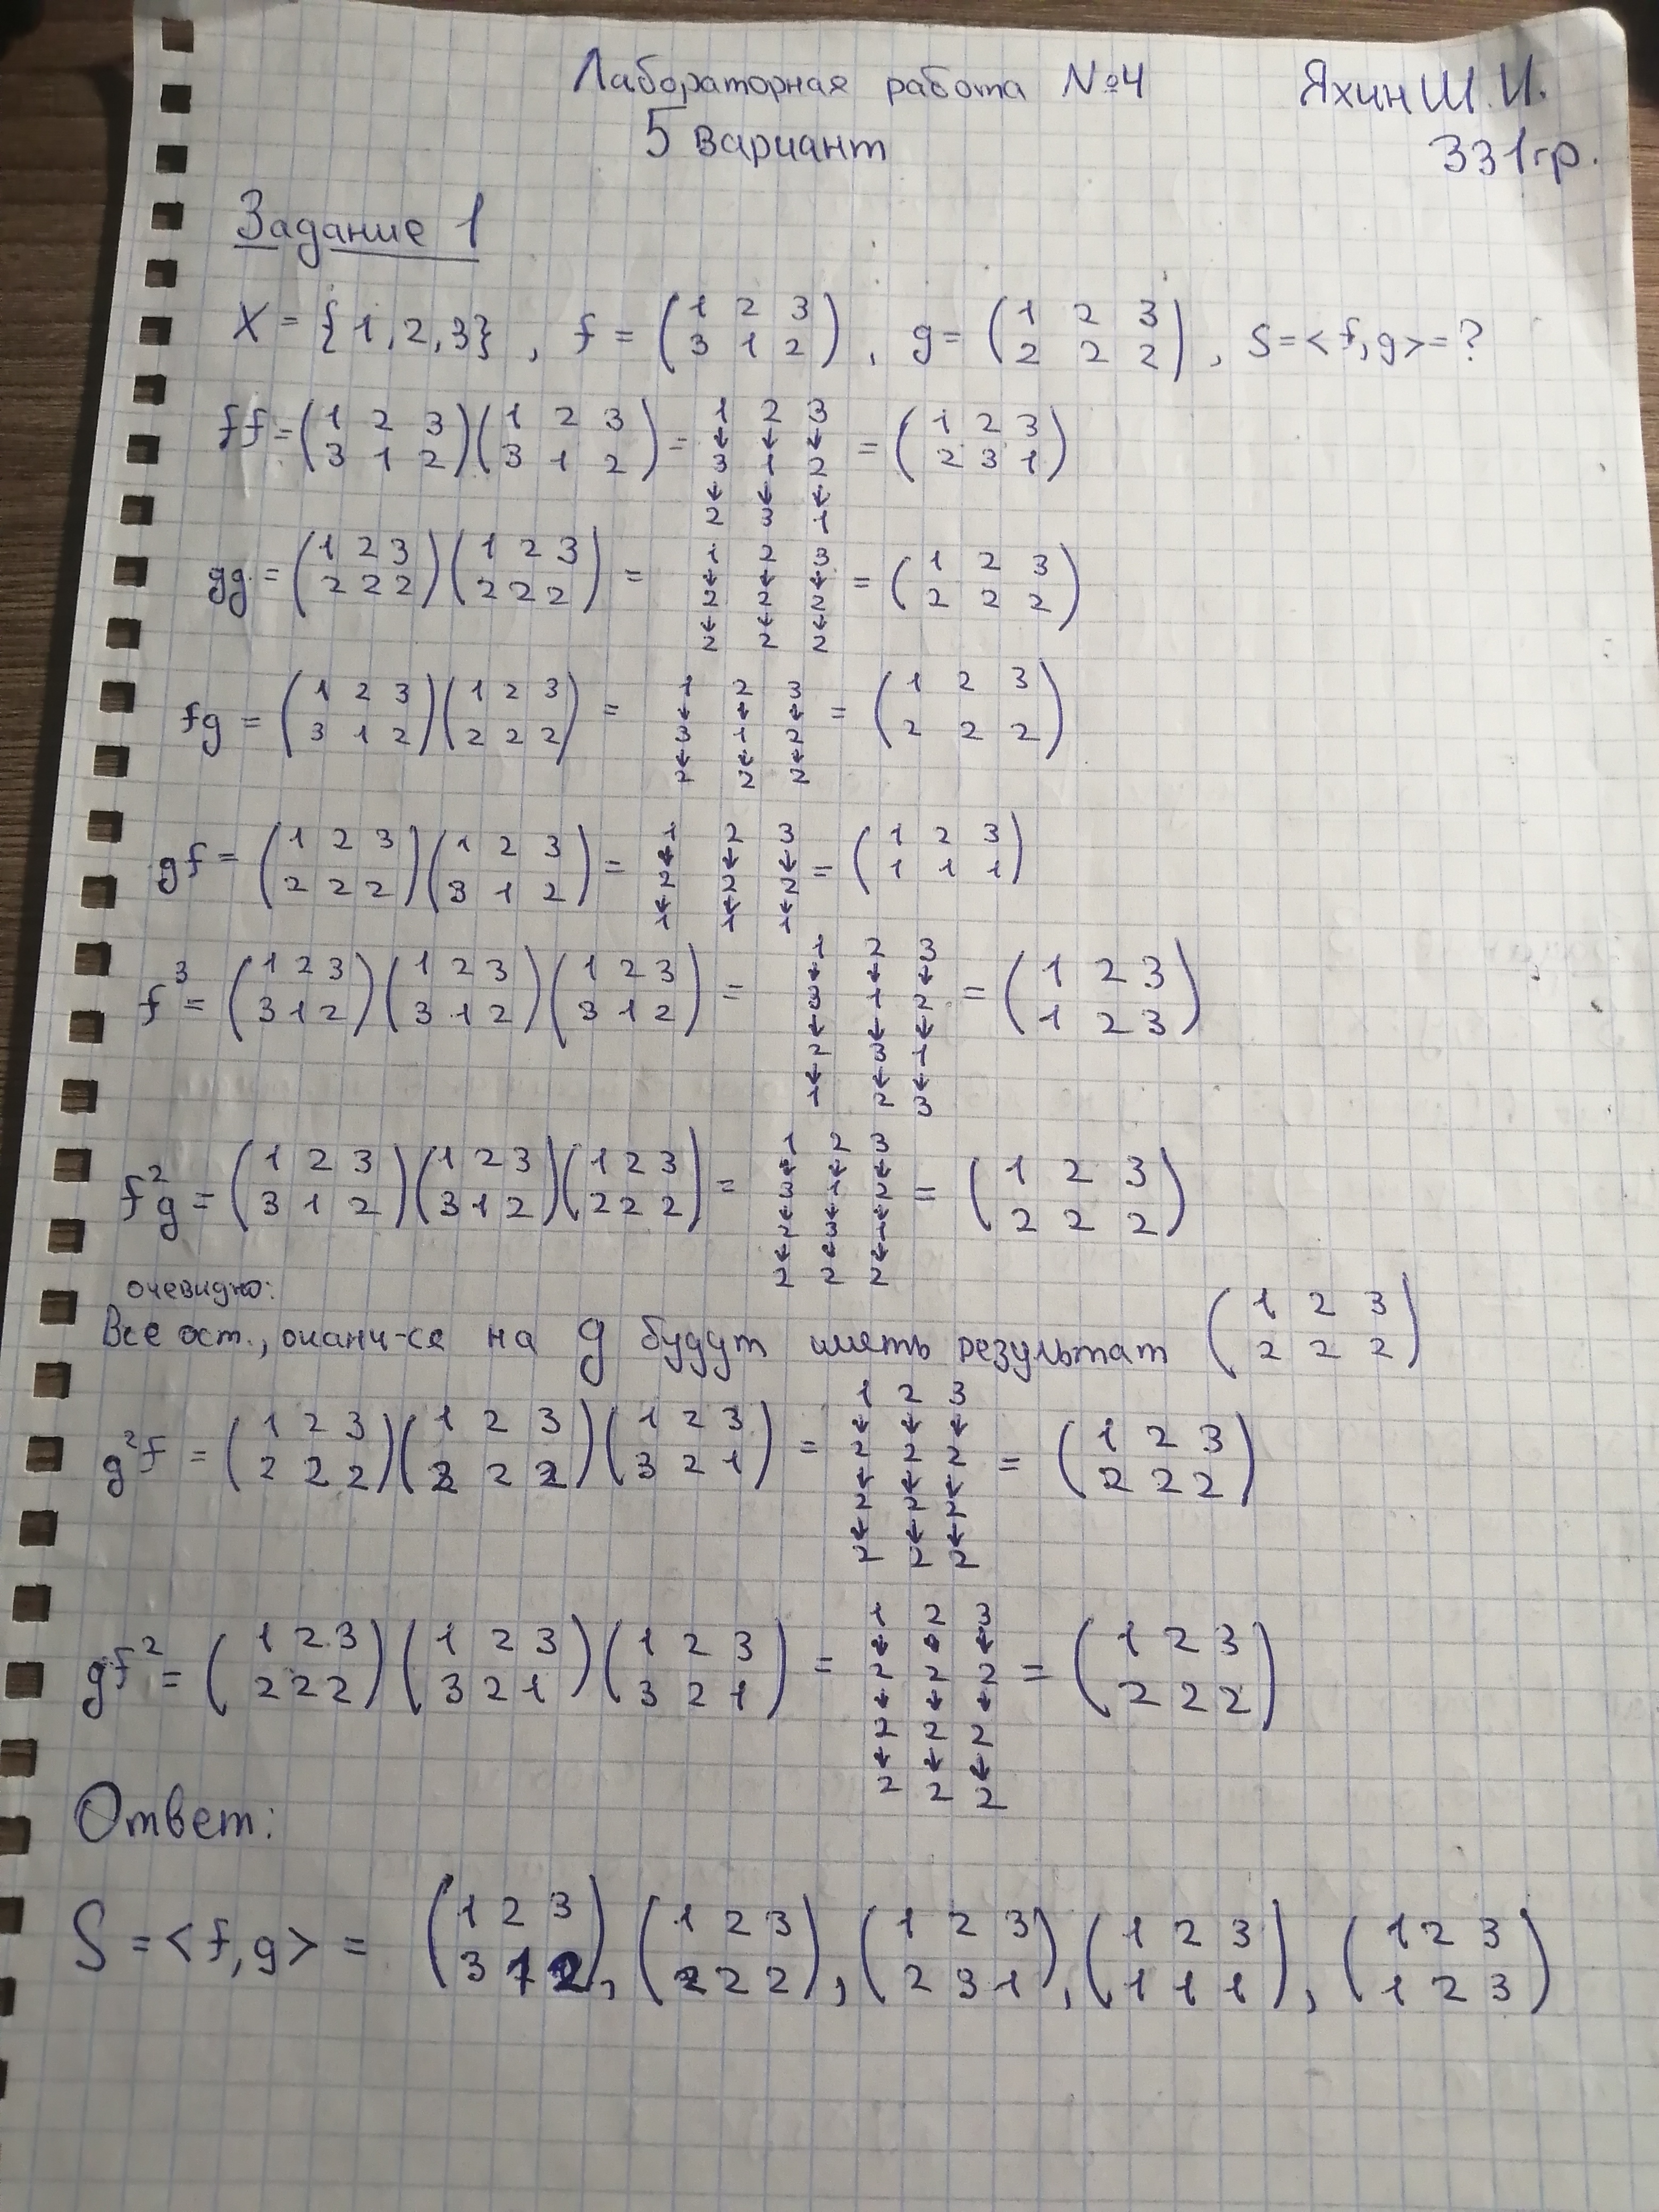 Лабораторная работа №4 Яхин Ш.И.
5 вариант 331гр.
Задание 1
X = {1, 2, 3}, f = (1 2 3 / 3 1 2), g = (1 2 3 / 2 2 2), S = <f, g> = ?
ff = (1 2 3 / 3 1 2)(1 2 3 / 3 1 2) = 1→3→2 2→1→3 3→2→1 = (1 2 3 / 2 3 1)
gg = (1 2 3 / 2 2 2)(1 2 3 / 2 2 2) = 1→2→2 2→2→2 3→2→2 = (1 2 3 / 2 2 2)
fg = (1 2 3 / 3 1 2)(1 2 3 / 2 2 2) = 1→3→2 2→1→2 3→2→2 = (1 2 3 / 2 2 2)
gf = (1 2 3 / 2 2 2)(1 2 3 / 3 1 2) = 1→2→1 2→2→1 3→2→1 = (1 2 3 / 1 1 1)
f³ = (1 2 3 / 3 1 2)(1 2 3 / 3 1 2)(1 2 3 / 3 1 2) = 1→3→2→1 2→1→3→2 3→2→1→3 = (1 2 3 / 1 2 3)
f²g = (1 2 3 / 3 1 2)(1 2 3 / 3 1 2)(1 2 3 / 2 2 2) = 1→3→2→2 2→1→3→2 3→2→1→2 = (1 2 3 / 2 2 2)
очевидно:
Все ост., оканч-ся на g будут иметь результат (1 2 3 / 2 2 2)
g²f = (1 2 3 / 2 2 2)(1 2 3 / 2 2 2)(1 2 3 / 3 2 1) = 1→2→2→2 2→2→2→2 3→2→2→2 = (1 2 3 / 2 2 2)
gf² = (1 2 3 / 2 2 2)(1 2 3 / 3 2 1)(1 2 3 / 3 2 1) = 1→2→2→2 2→2→2→2 3→2→2→2 = (1 2 3 / 2 2 2)
Ответ:
S = <f, g> = (1 2 3 / 3 1 2), (1 2 3 / 2 2 2), (1 2 3 / 2 3 1), (1 2 3 / 1 1 1), (1 2 3 / 1 2 3)